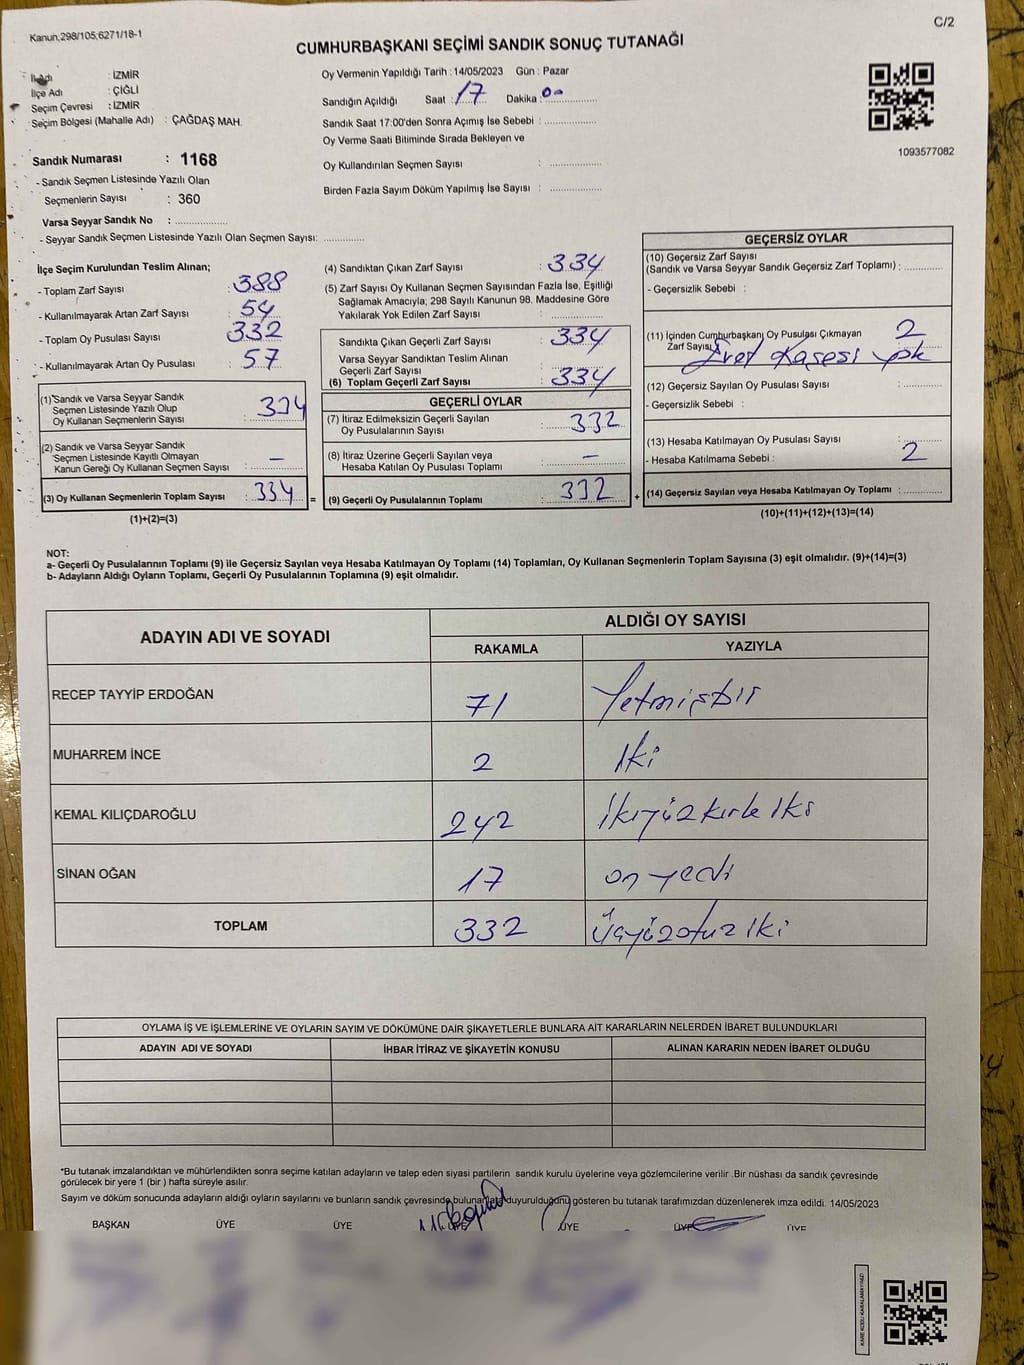 Kanun;298/105;6271/18-1
C/2
CUMHURBAŞKANI SEÇİMİ SANDIK SONUÇ TUTANAĞI
İl Adı : İZMİR
İlçe Adı : ÇİĞLİ
Seçim Çevresi : İZMİR
Seçim Bölgesi (Mahalle Adı) : ÇAĞDAŞ MAH.
Sandık Numarası : 1168
- Sandık Seçmen Listesinde Yazılı Olan
Seçmenlerin Sayısı : 360
Varsa Seyyar Sandık No :
- Seyyar Sandık Seçmen Listesinde Yazılı Olan Seçmen Sayısı:
Oy Vermenin Yapıldığı Tarih : 14/05/2023 Gün : Pazar
Sandığın Açıldığı Saat : 17 Dakika : 00
Sandık Saat 17:00'den Sonra Açımış İse Sebebi :
Oy Verme Saati Bitiminde Sırada Bekleyen ve
Oy Kullandırılan Seçmen Sayısı :
Birden Fazla Sayım Döküm Yapılmış İse Sayısı :
1093577082
İlçe Seçim Kurulundan Teslim Alınan;
- Toplam Zarf Sayısı : 388
- Kullanılmayarak Artan Zarf Sayısı : 54
- Toplam Oy Pusulası Sayısı : 332
- Kullanılmayarak Artan Oy Pusulası : 57
(1) Sandık ve Varsa Seyyar Sandık
Seçmen Listesinde Yazılı Olup
Oy Kullanan Seçmenlerin Sayısı : 334
(2) Sandık ve Varsa Seyyar Sandık
Seçmen Listesinde Kayıtlı Olmayan
Kanun Gereği Oy Kullanan Seçmen Sayısı : –
(3) Oy Kullanan Seçmenlerin Toplam Sayısı : 334 =
(1)+(2)=(3)
(4) Sandıktan Çıkan Zarf Sayısı : 334
(5) Zarf Sayısı Oy Kullanan Seçmen Sayısından Fazla İse, Eşitliği
Sağlamak Amacıyla; 298 Sayılı Kanunun 98. Maddesine Göre
Yakılarak Yok Edilen Zarf Sayısı :
Sandıkta Çıkan Geçerli Zarf Sayısı : 334
Varsa Seyyar Sandıktan Teslim Alınan
Geçerli Zarf Sayısı :
(6) Toplam Geçerli Zarf Sayısı : 334
GEÇERLİ OYLAR
(7) İtiraz Edilmeksizin Geçerli Sayılan
Oy Pusulalarının Sayısı : 332
(8) İtiraz Üzerine Geçerli Sayılan veya
Hesaba Katılan Oy Pusulası Toplamı : –
(9) Geçerli Oy Pusulalarının Toplamı : 332 +
GEÇERSİZ OYLAR
(10) Geçersiz Zarf Sayısı
(Sandık ve Varsa Seyyar Sandık Geçersiz Zarf Toplamı) :
- Geçersizlik Sebebi :
(11) İçinden Cumhurbaşkanı Oy Pusulası Çıkmayan
Zarf Sayısı 2
Evet Kaşesi yok
(12) Geçersiz Sayılan Oy Pusulası Sayısı :
- Geçersizlik Sebebi :
(13) Hesaba Katılmayan Oy Pusulası Sayısı :
- Hesaba Katılmama Sebebi : 2
(14) Geçersiz Sayılan veya Hesaba Katılmayan Oy Toplamı :
(10)+(11)+(12)+(13)=(14)
NOT:
a- Geçerli Oy Pusulalarının Toplamı (9) ile Geçersiz Sayılan veya Hesaba Katılmayan Oy Toplamı (14) Toplamları, Oy Kullanan Seçmenlerin Toplam Sayısına (3) eşit olmalıdır. (9)+(14)=(3)
b- Adayların Aldığı Oyların Toplamı, Geçerli Oy Pusulalarının Toplamına (9) eşit olmalıdır.
ADAYIN ADI VE SOYADI
ALDIĞI OY SAYISI
RAKAMLA YAZIYLA
RECEP TAYYİP ERDOĞAN 71 Yetmişbir
MUHARREM İNCE 2 İki
KEMAL KILIÇDAROĞLU 242 İkiyüzkırkiki
SİNAN OĞAN 17 on yedi
TOPLAM 332 Üçyüzotuziki
OYLAMA İŞ VE İŞLEMLERİNE VE OYLARIN SAYIM VE DÖKÜMÜNE DAİR ŞİKAYETLERLE BUNLARA AİT KARARLARIN NELERDEN İBARET BULUNDUKLARI
ADAYIN ADI VE SOYADI İHBAR İTİRAZ VE ŞİKAYETİN KONUSU ALINAN KARARIN NEDEN İBARET OLDUĞU
*Bu tutanak imzalandıktan ve mühürlendikten sonra seçime katılan adayların ve talep eden siyasi partilerin sandık kurulu üyelerine veya gözlemcilerine verilir .Bir nüshası da sandık çevresinde
görülecek bir yere 1 (bir ) hafta süreyle asılır.
Sayım ve döküm sonucunda adayların aldığı oyların sayılarını ve bunların sandık çevresinde duyurulduğunu gösteren bu tutanak tarafımızdan düzenlenerek imza edildi. 14/05/2023
BAŞKAN ÜYE ÜYE ÜYE ÜYE ÜYE ÜYE
KARE KODU KARALAMAYINIZ!